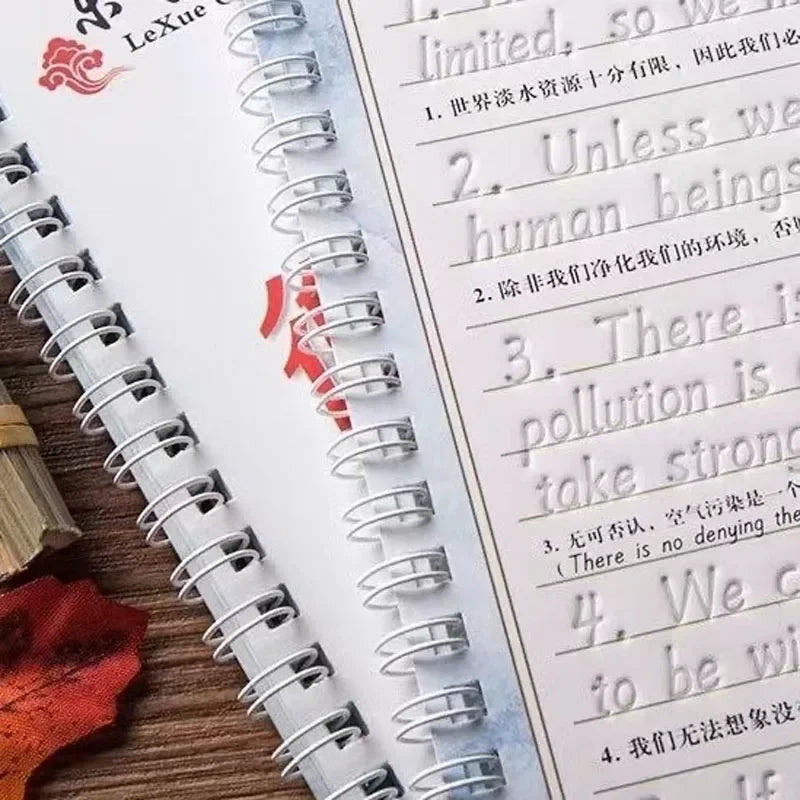 LeXue
limited, so we
1. 世界淡水资源十分有限，因此我们必
2. Unless we
human beings
2. 除非我们净化我们的环境，否则
3. There is
pollution is
take strong
3. 无可否认，空气污染是一个
(There is no denying the
4. We
to be
4. 我们无法想象没